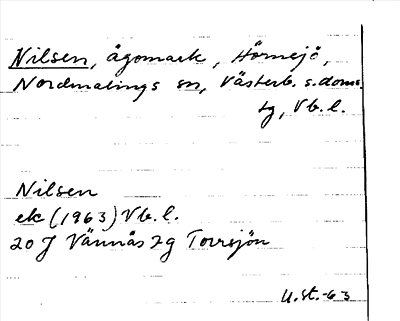 Nilsen, ågomark, Hörnsjö,
Nordmalings sn, Västerb. s. doms.
tg, Vb. l.
Nilsen
ek (1963) Vb. l.
20 J Vännäs 2g Torrsjön
U.St.-63